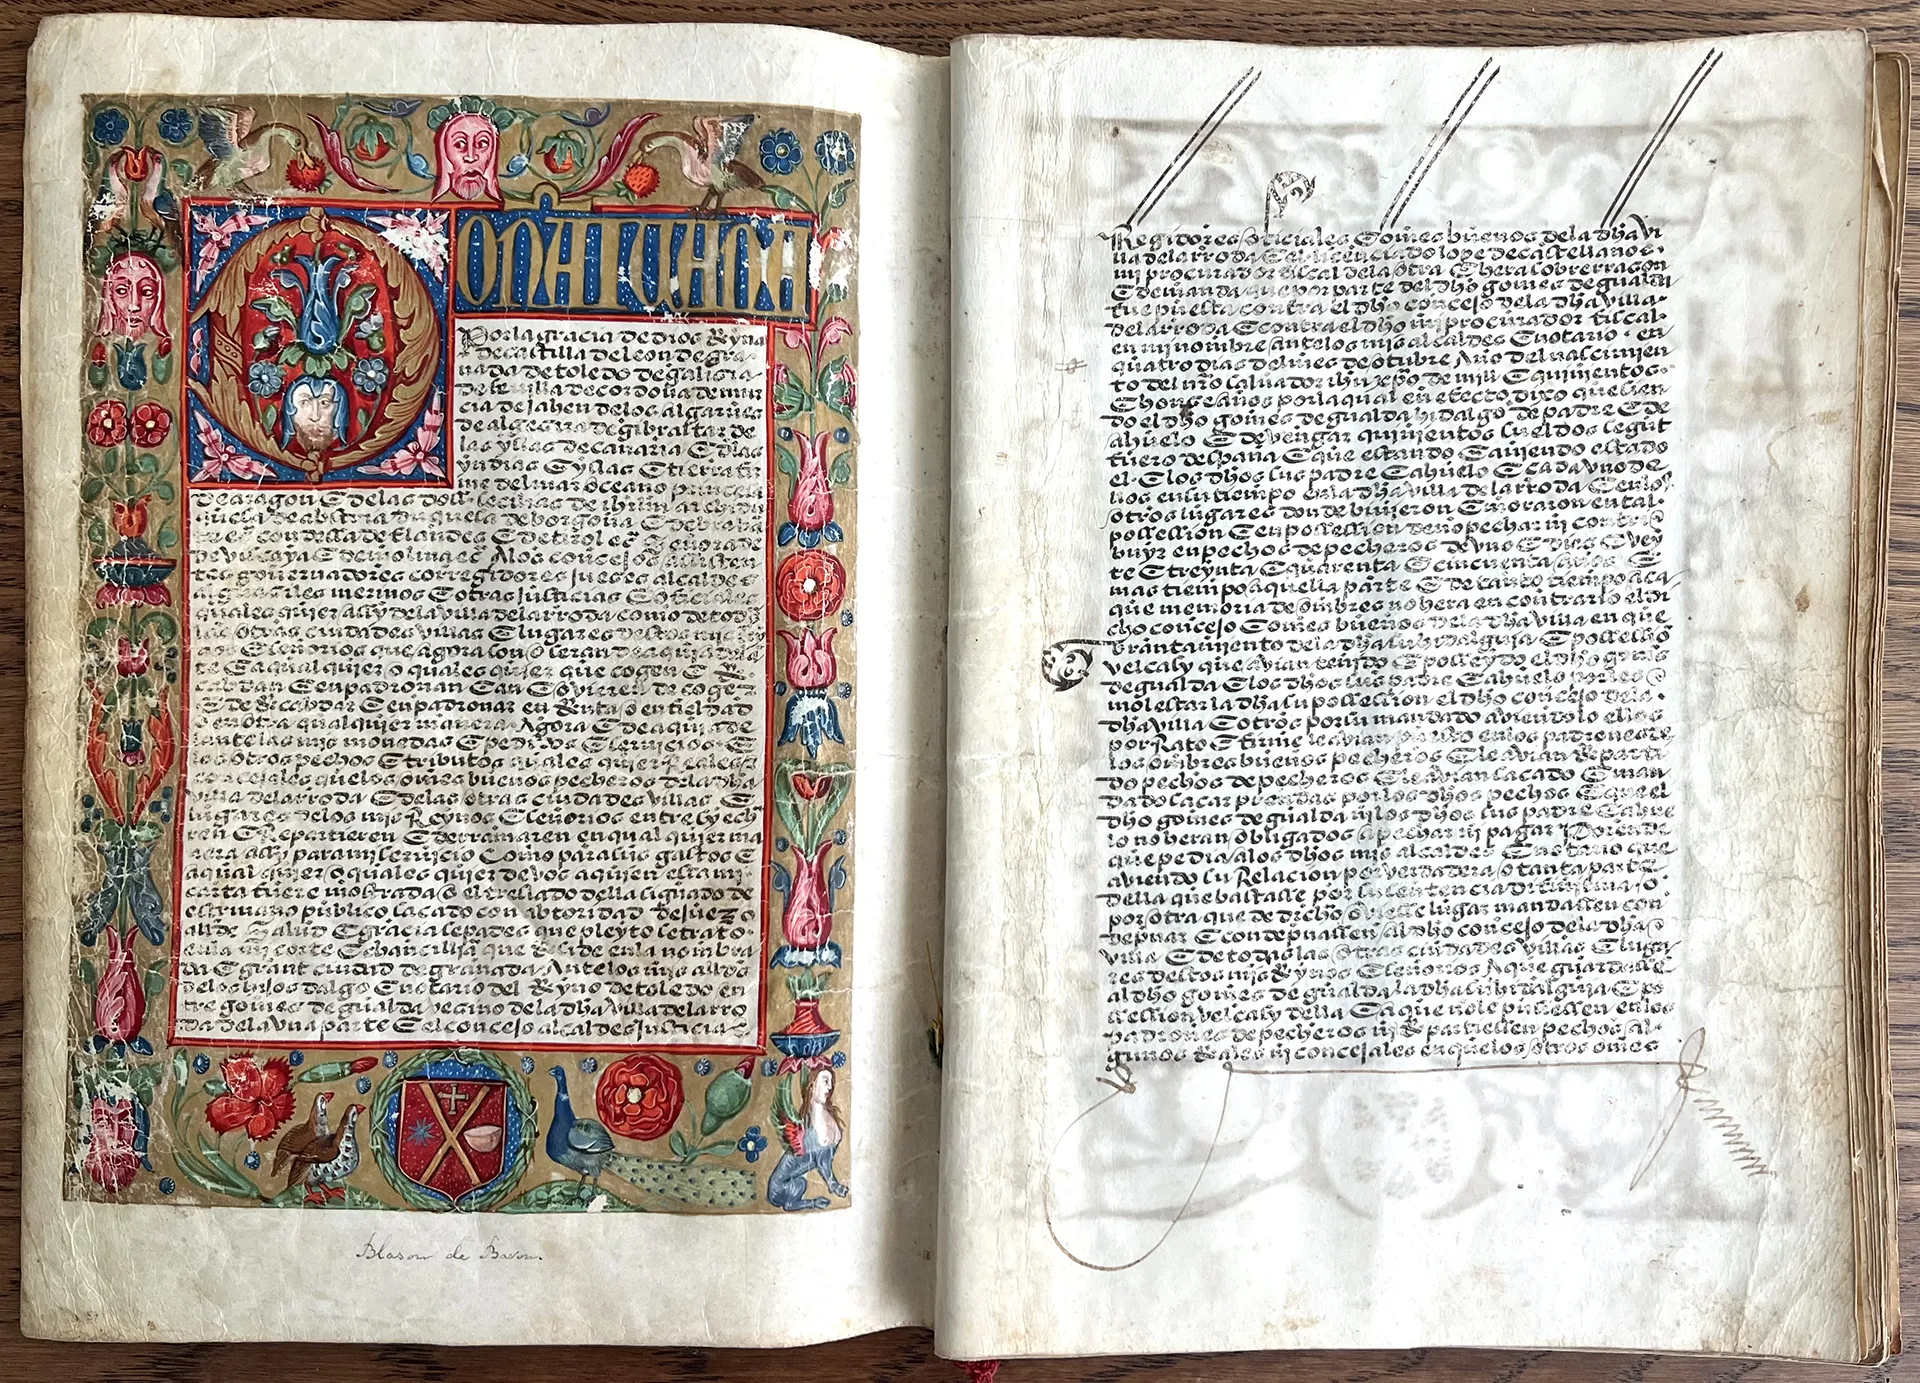 DOÑA JUANA
Por la gracia de dios Reyna
de castilla de leon de gra
nada de toledo de galizia
de sevilla de cordova de mur
cia de jahen delos algarves
de algezira de gibraltar de
las yslas de canaria E delas
yndias yslas E tierra fir
me del mar oceano princesa
de aragon E delas dos secilias de jhrlm archidu
quesa de abstria duquesa de borgoña E de braba
te ec condessa de flandes E de tirol ec Señora de
de vizcaya E de molina ec Alos concejos asisten
tes governadores corregidores jueses alcaldes
alguasiles merinos E otras justicias E oficiales
quales quier asy dela villa delarroda como de todas
las otras ciudades villas E lugares destos mis rey
nos E señorios que agora son o seran de aqui adelan
te E a qual quier o quales quier que cogen E Re
cabdan E enpadronan E an E ovieren de coger
E de Recabdar E enpadronar en Renta o en fieldad
o en otra qualquier manera Agora E de aqui ade
lante las mis monedas E pedidos E servicios E
los otros pechos E tributos quales quier Reales E
concejales quelos omes buenos pecheros dela dha
villa delarroda E delas otras ciudades villas E
lugares delos mis Reynos E señorios entre sy ech
ren E Repartieren E derramaren en qual quier ma
nera asy para mi servicio como para sus gastos E
a qual quier o quales quier de vos a quien esta mi
carta fuere mostrada o el treslado della signado de
escrivano publico sacado con abtoridad de juez o
allde Salud E gracia sepades que pleyto se trato
en la mi corte E chancilleria que Reside en la nombra
da E grant ciudad de granada Antelos mis alldes
delos hijos dalgo E notario del Reyno de toledo en
tre gomes de gualda vezino dela dha villa delarro
da dela una parte E el concejo alcaldes justicia
Blason de
Regidores oficiales E omes buenos dela dha vi
lla delarroda E el licenciado lope de castellanos
mi procurador fiscal dela otra E hera sobre rrason
E demanda que por parte del dho gomes de gualda
fue puesta contra el dho concejo dela dha villa
delarroda E contra el dho mi procurador fiscal
en mi nombre ante los mis alcaldes E notario en
quatro dias del mes de otubre Año del nascimien
to del nro salvador ihu xpo de mill E quinientos
E honse años por la qual en efecto dixo que sien
do el dho gomes de gualda hidalgo de padre E de
abuelo E de vengar quinientos sueldos segunt
fuero despaña E que estando E aviendo estado
el E los dhos sus padre E abuelo E cada uno de
llos en su tiempo en la dha villa delarroda E en los
otros lugares donde bivieron E moraron en tal
possession E en possession de no pechar ni contri
buyr en pechos de pecheros de uno E dies E vey
te E treynta E quarenta E cincuenta años E
mas tiempo aquella parte E de tanto tiempo aca
que memoria de ombres no hera en contrario el di
cho concejo E omes buenos dela dha villa en que
brantamiento dela dha su hidalguia E possessio
vel casy que avian tenido E posseydo el dho gomes
de gualda E los dhos sus padre E abuelo por les
molestar la dha su possession el dho concejo dela
dha villa E otros por su mandado aviendolo ellos
por Rato E firme le avian puesto en los padrones de
los ombres buenos pecheros E le avian Reparti
do pechos de pecheros E le avian sacado E man
dado sacar prendas por los dhos pechos E que el
dho gomes de gualda ni los dhos sus padre E abue
lo no heran obligados a pechar ni pagar Porende
que pedia a los dhos mis alcaldes E notario que
aviendo su Relacion por verdadera o tanta parte
della que bastasse por su sentencia difinitiva o
por otra que de dicho oviesse lugar mandassen con
depnar E condepnassen al dho concejo dela dha
villa E de todas las otras ciudades villas E luga
res destos mis Reynos E señorios A que guardasse
al dho gomes de gualda la dha su hidalguia E po
ssession vel casy della E a que no le pusiessen en los
padrones de pecheros ni Repartiessen pechos al
gunos Reales ni concejales en quelos otros omes